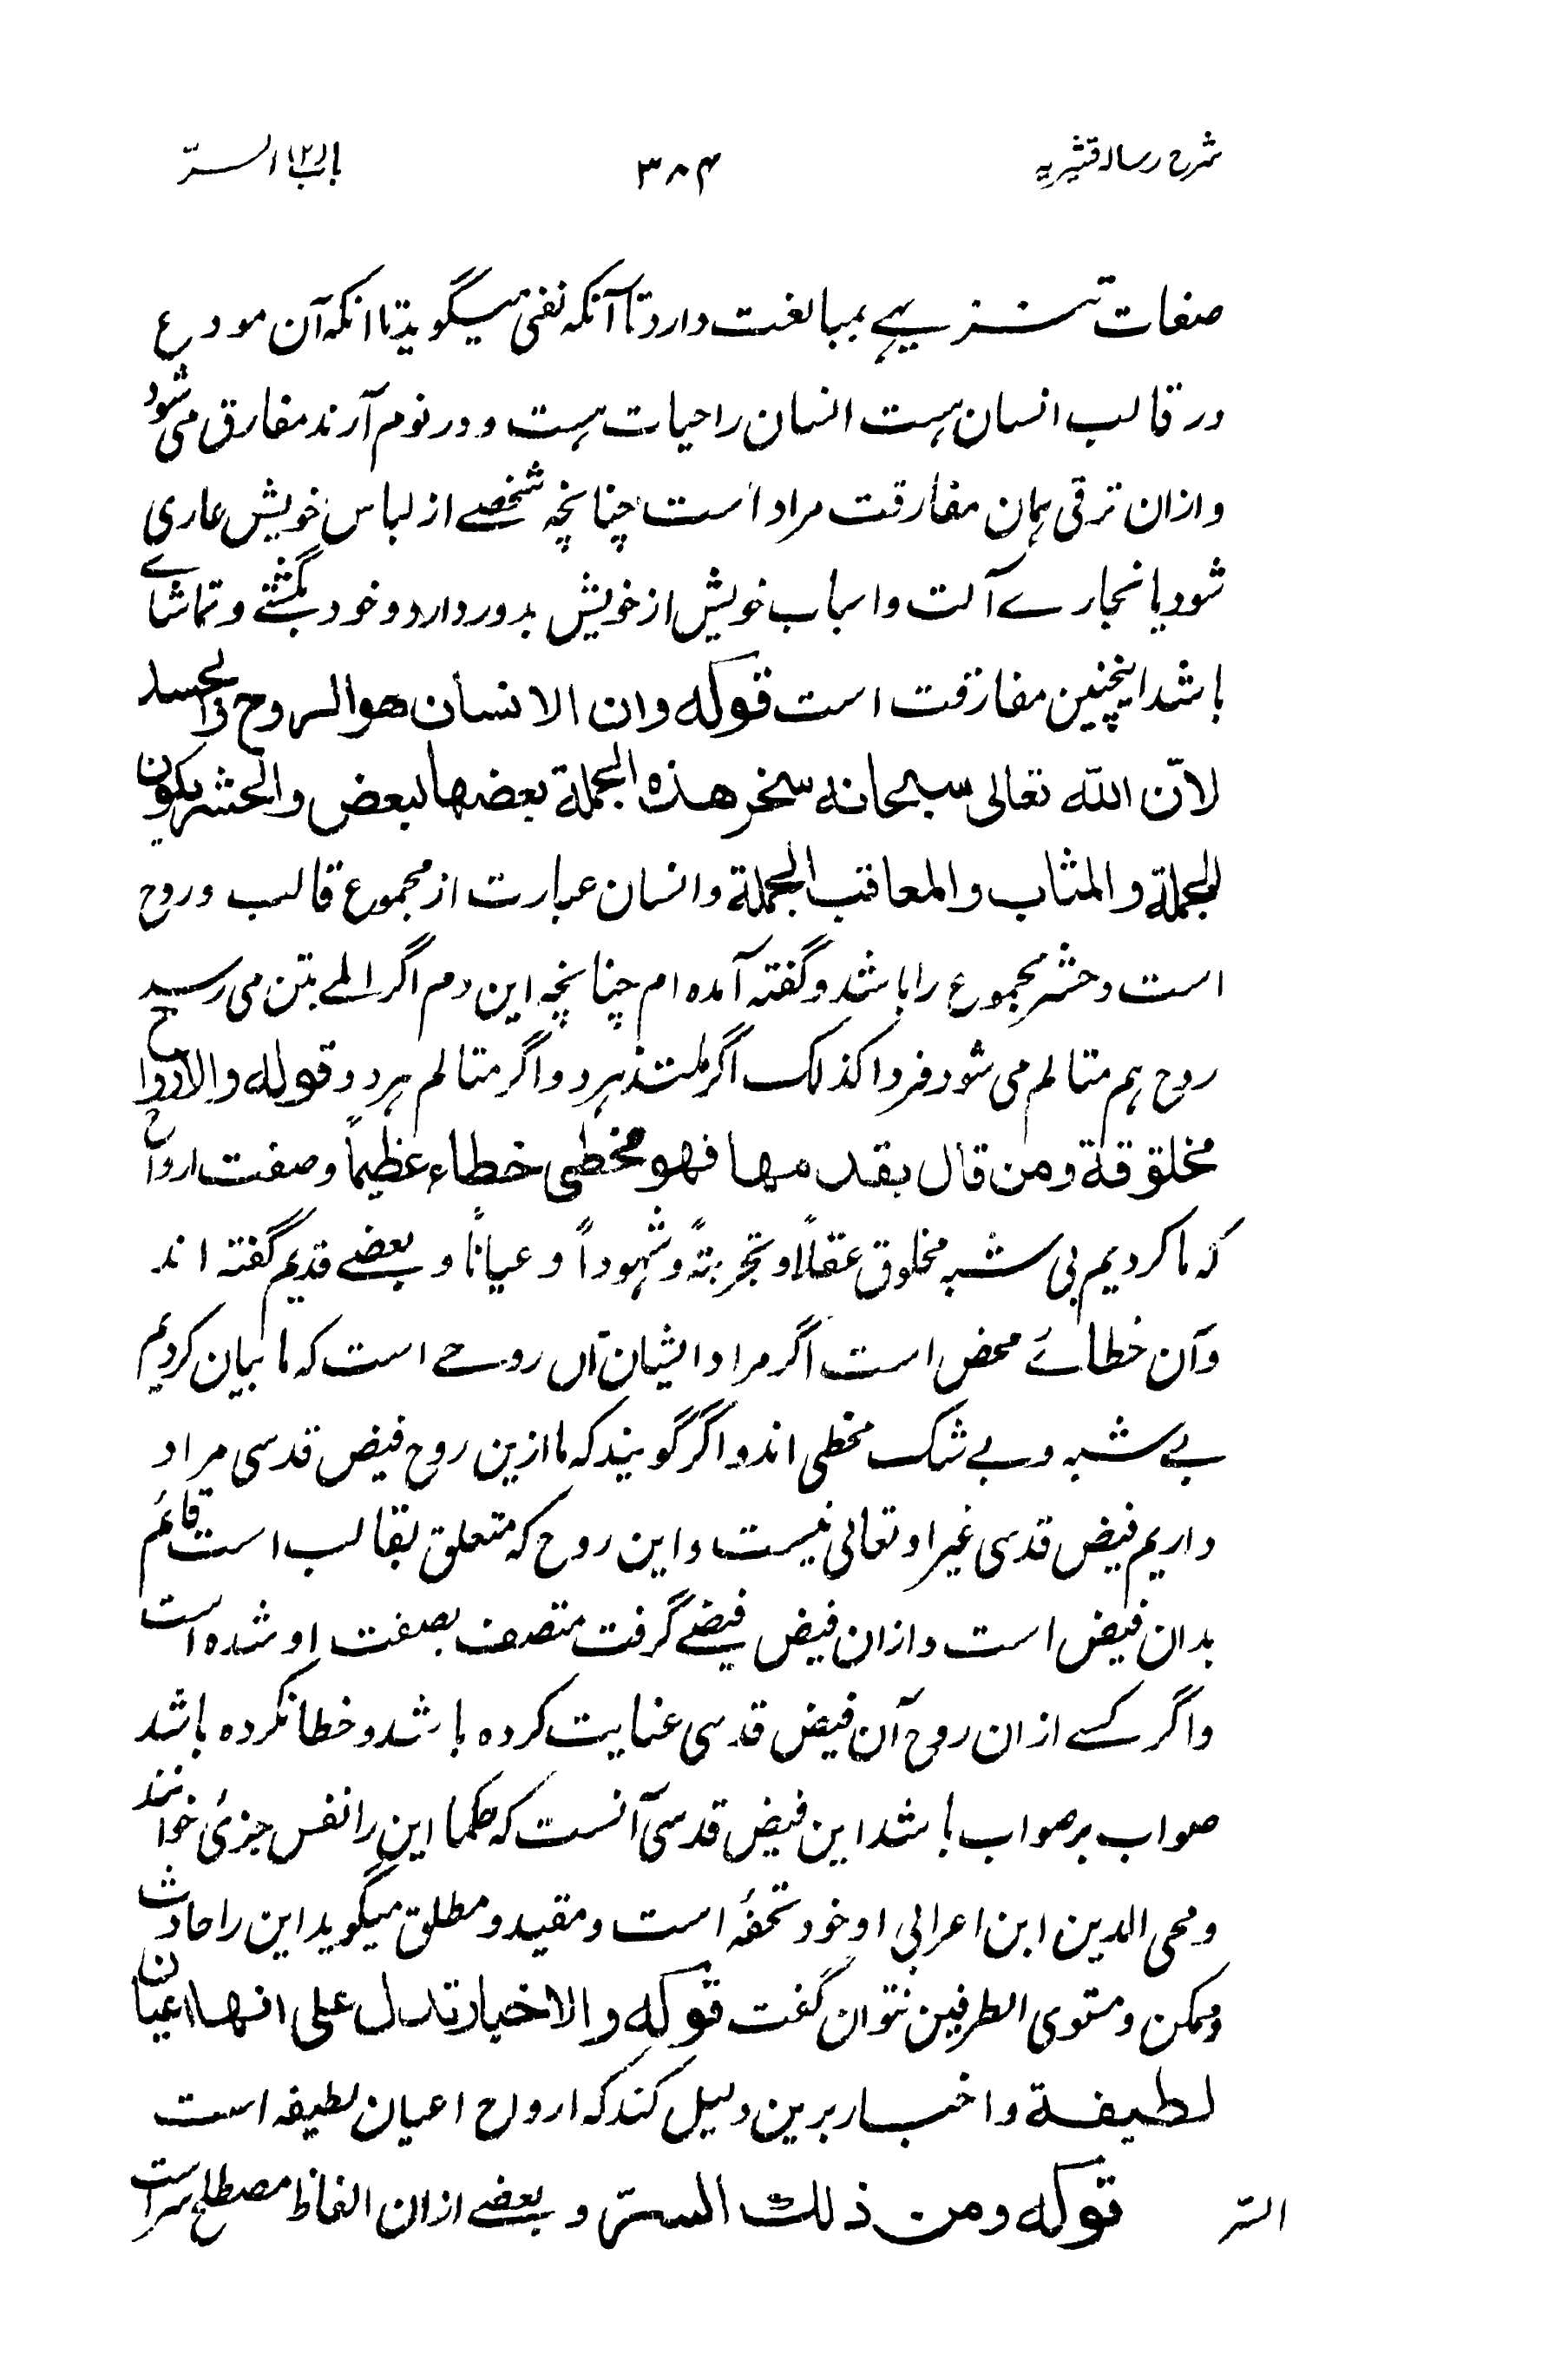 شرح رسالہ قشیریہ ۳۸۴ باب (۲) السرّ
صفات تنزیہے بمبالغت دارد تا آنکہ نفی میگوید تا انکہ آن مودع
در قالب انسان ہست انسان را حیات ہست و در نوم آرند مفارق می شود
و ازان ترقی ہمان مفارقت مراد است چنانچہ شخصے از لباس خویش عاری
شود یا نجارے آلت و اسباب خویش از خویش بدور دارد و خود بگشتے و تماشائے
باشد اینچنین مفارقت است قولہ وان الانسان هوالروح والجسد
لانّ اللّٰه تعالی سبحانه سخر هذه الجملة بعضها لبعض والحشر یکون
للجملة والمثاب والمعاقب الجملة و انسان عبارت از مجموع قالب و روح
است و حشر مجموع را باشد و گفتہ آمدہ ام چنانچہ این دم اگر المے بتن می رسد
روح ہم متالم می شود فردا کذلک اگر ملتذ ہر دو اگر متالم ہر دو قوله والارواح
مخلوقة ومن قال بقدمها فهو مخطی خطاء عظیماً و صفت ارواح
کہ ما کردیم بی شبہ مخلوق عقلاً و تجربتہً و شہوداً و عیاناً و بعضے قدیم گفتہ اند
و آن خطائے محض است اگر مراد ایشان آں روحے است کہ ما بیان کردیم
بے شبہ و بے شک مخطی اند و اگر گویند کہ ما ازین روح فیض قدسی مراد
داریم فیض قدسی غیر او تعالی نیست و این روح کہ متعلق بقالب است قائم
بدان فیض است و ازان فیض فیضے گرفت متصف بصفت او شدہ است
و اگر کسے ازان روح آن فیض قدسی عنایت کردہ باشد و خطا نکردہ باشد
صواب بر صواب باشد این فیض قدسی آنست کہ حکما این را نفس جزئ خوانند
و محی الدین ابن اعرابی او خود تحفۂ است و مقید و مطلق میگوید این را حادث
و ممکن و مستوی الطرفین نتوان گفت قوله والاخبار تدل علی انها اعیان
لطیفة و اخبار برین دلیل کند کہ ارواح اعیان لطیفہ است
السّر قوله ومن ذلك السرّ و بعضے ازان الفاظ مصطلح سر است